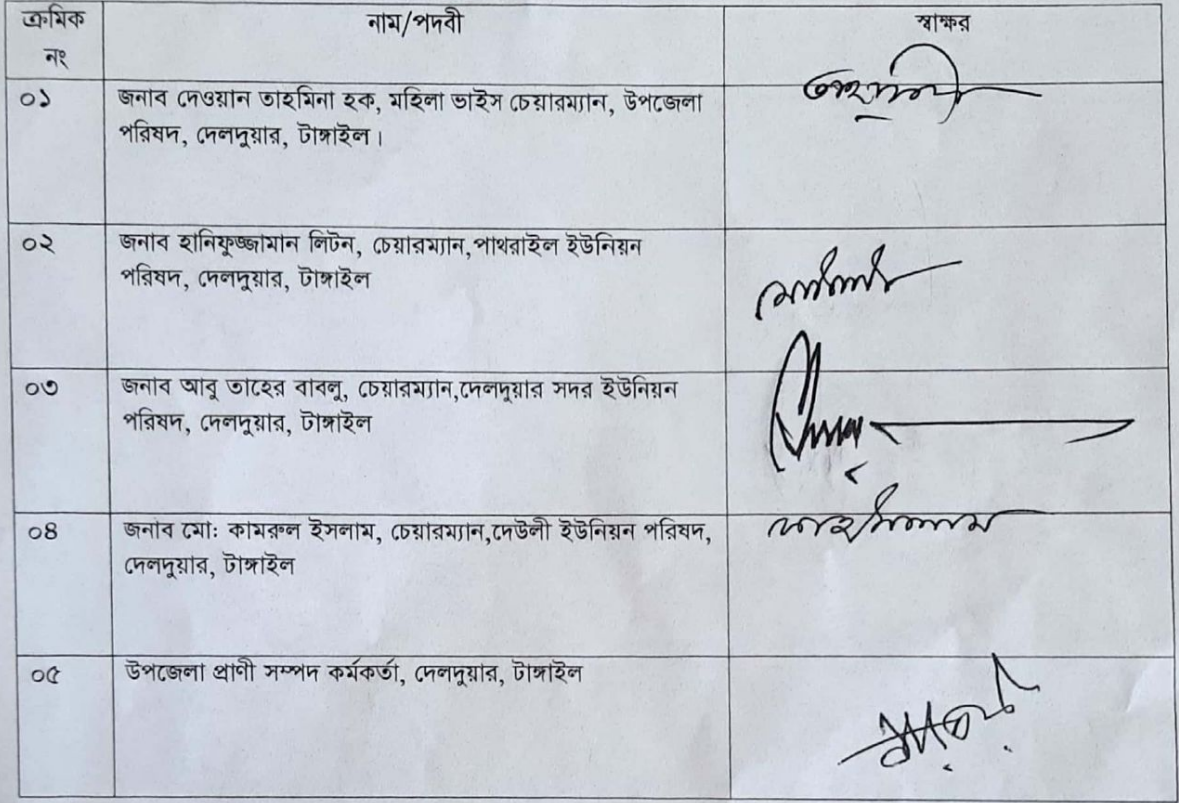 ক্রমিক নাম/পদবী স্বাক্ষর
নং
০১ জনাব দেওয়ান তাহমিনা হক, মহিলা ভাইস চেয়ারম্যান, উপজেলা
পরিষদ, দেলদুয়ার, টাঙ্গাইল।
০২ জনাব হানিফুজ্জামান লিটন, চেয়ারম্যান,পাথরাইল ইউনিয়ন
পরিষদ, দেলদুয়ার, টাঙ্গাইল
০৩ জনাব আবু তাহের বাবলু, চেয়ারম্যান,দেলদুয়ার সদর ইউনিয়ন
পরিষদ, দেলদুয়ার, টাঙ্গাইল
০৪ জনাব মো: কামরুল ইসলাম, চেয়ারম্যান,দেউলী ইউনিয়ন পরিষদ,
দেলদুয়ার, টাঙ্গাইল
০৫ উপজেলা প্রাণী সম্পদ কর্মকর্তা, দেলদুয়ার, টাঙ্গাইল